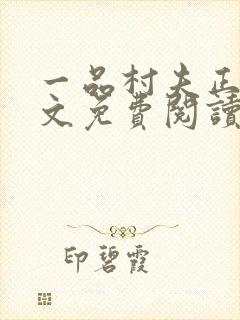 一品村夫正
文免費閱讀
印碧霞